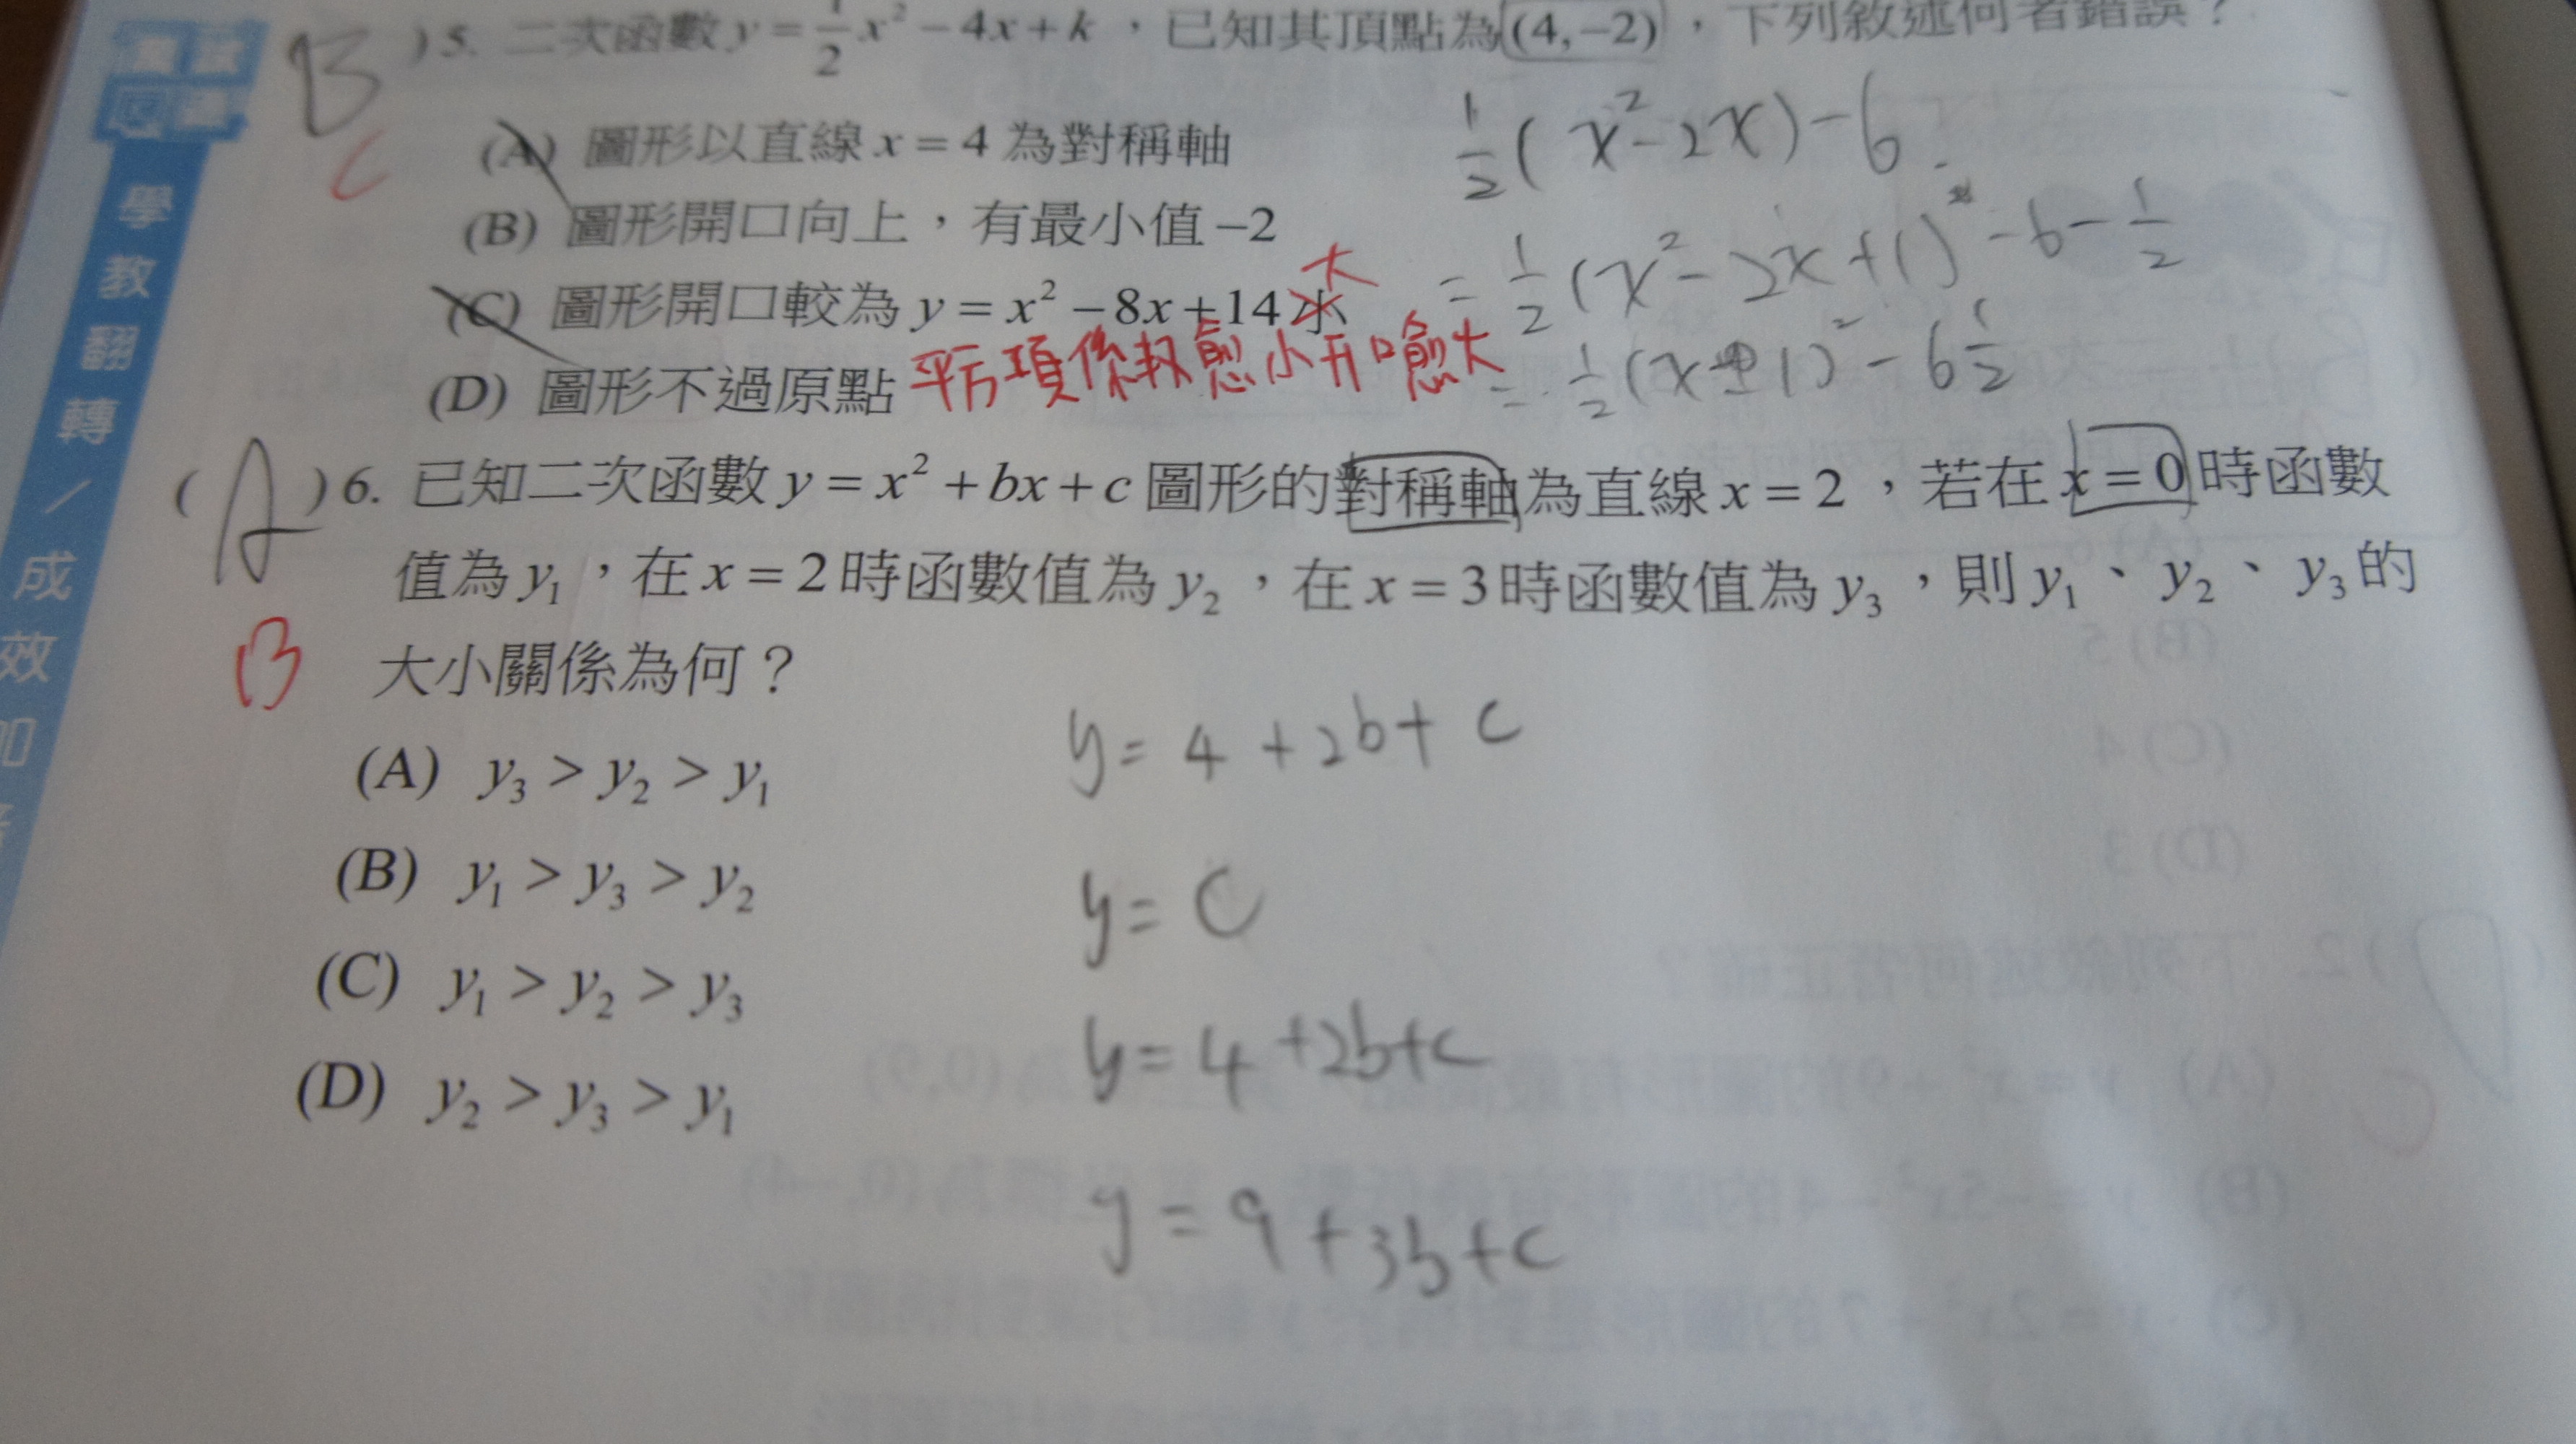 B )5. 二次函數 y = 1/2 x² − 4x + k ，已知其頂點為 (4,−2) ，下列敘述何者錯誤？
C
(A) 圖形以直線 x = 4 為對稱軸
(B) 圖形開口向上，有最小值 −2
(C) 圖形開口較為 y = x² − 8x + 14 小 大
(D) 圖形不過原點
平方項係數愈小開口愈大
1/2 ( x² − 2x ) − 6
= 1/2 ( x² − 2x + 1 ) − 6 − 1/2
= 1/2 ( x − 1 )² − 6 1/2
( A )6. 已知二次函數 y = x² + bx + c 圖形的對稱軸為直線 x = 2 ，若在 x = 0 時函數
值為 y₁ ，在 x = 2 時函數值為 y₂ ，在 x = 3 時函數值為 y₃ ，則 y₁ 、 y₂ 、 y₃ 的
B
大小關係為何？
(A) y₃ > y₂ > y₁
(B) y₁ > y₃ > y₂
(C) y₁ > y₂ > y₃
(D) y₂ > y₃ > y₁
y = 4 + 2b + c
y = c
y = 4 + 2b + c
y = 9 + 3b + c
學教翻轉／成效加